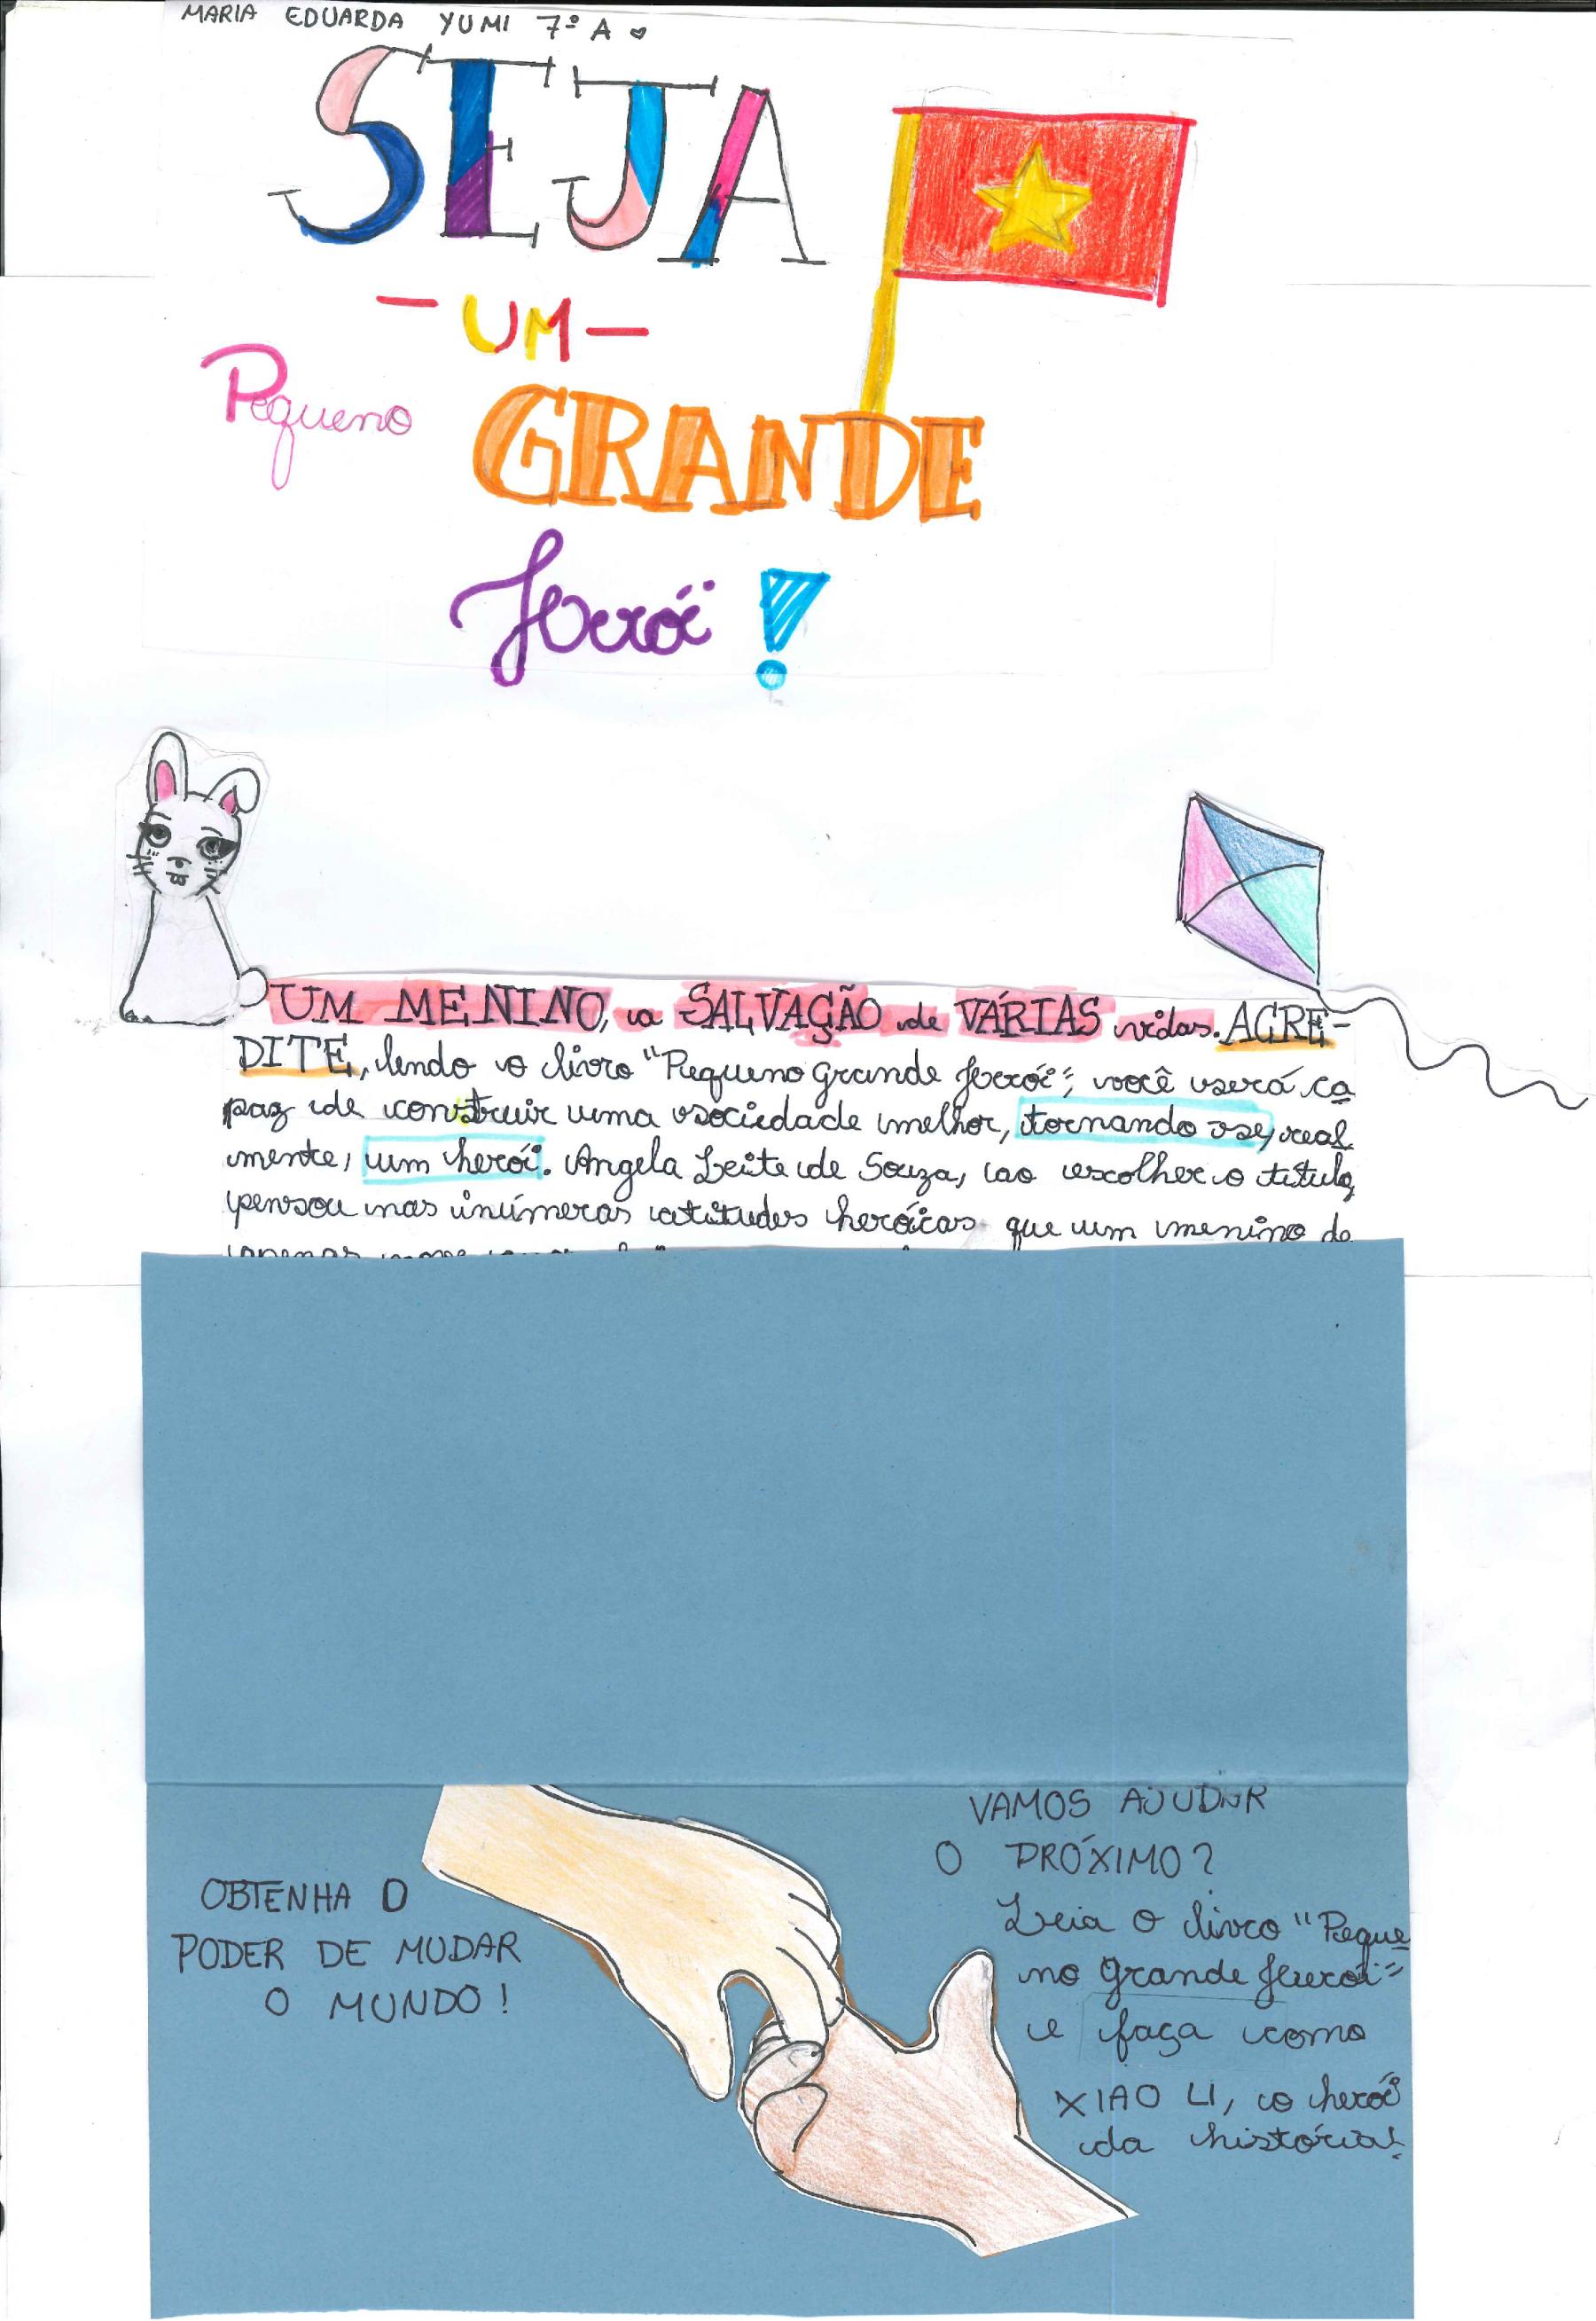 MARIA EDUARDA YUMI 7º A
SEJA
- UM -
Pequeno GRANDE
Herói !
UM MENINO, a SALVAÇÃO de VÁRIAS vidas. ACRE-
DITE, lendo o livro "Pequeno grande herói", você será ca
paz de construir uma sociedade melhor, tornando-se, real
mente, um herói. Angela Leite de Souza, ao escolher o título,
pensou nas inúmeras atitudes heróicas que um menino de
apenas nove
OBTENHA O
PODER DE MUDAR
O MUNDO!
VAMOS AJUDAR
O PRÓXIMO?
Leia o livro "Peque
no grande herói"
e faça como
XIAO LI, o herói
da história!